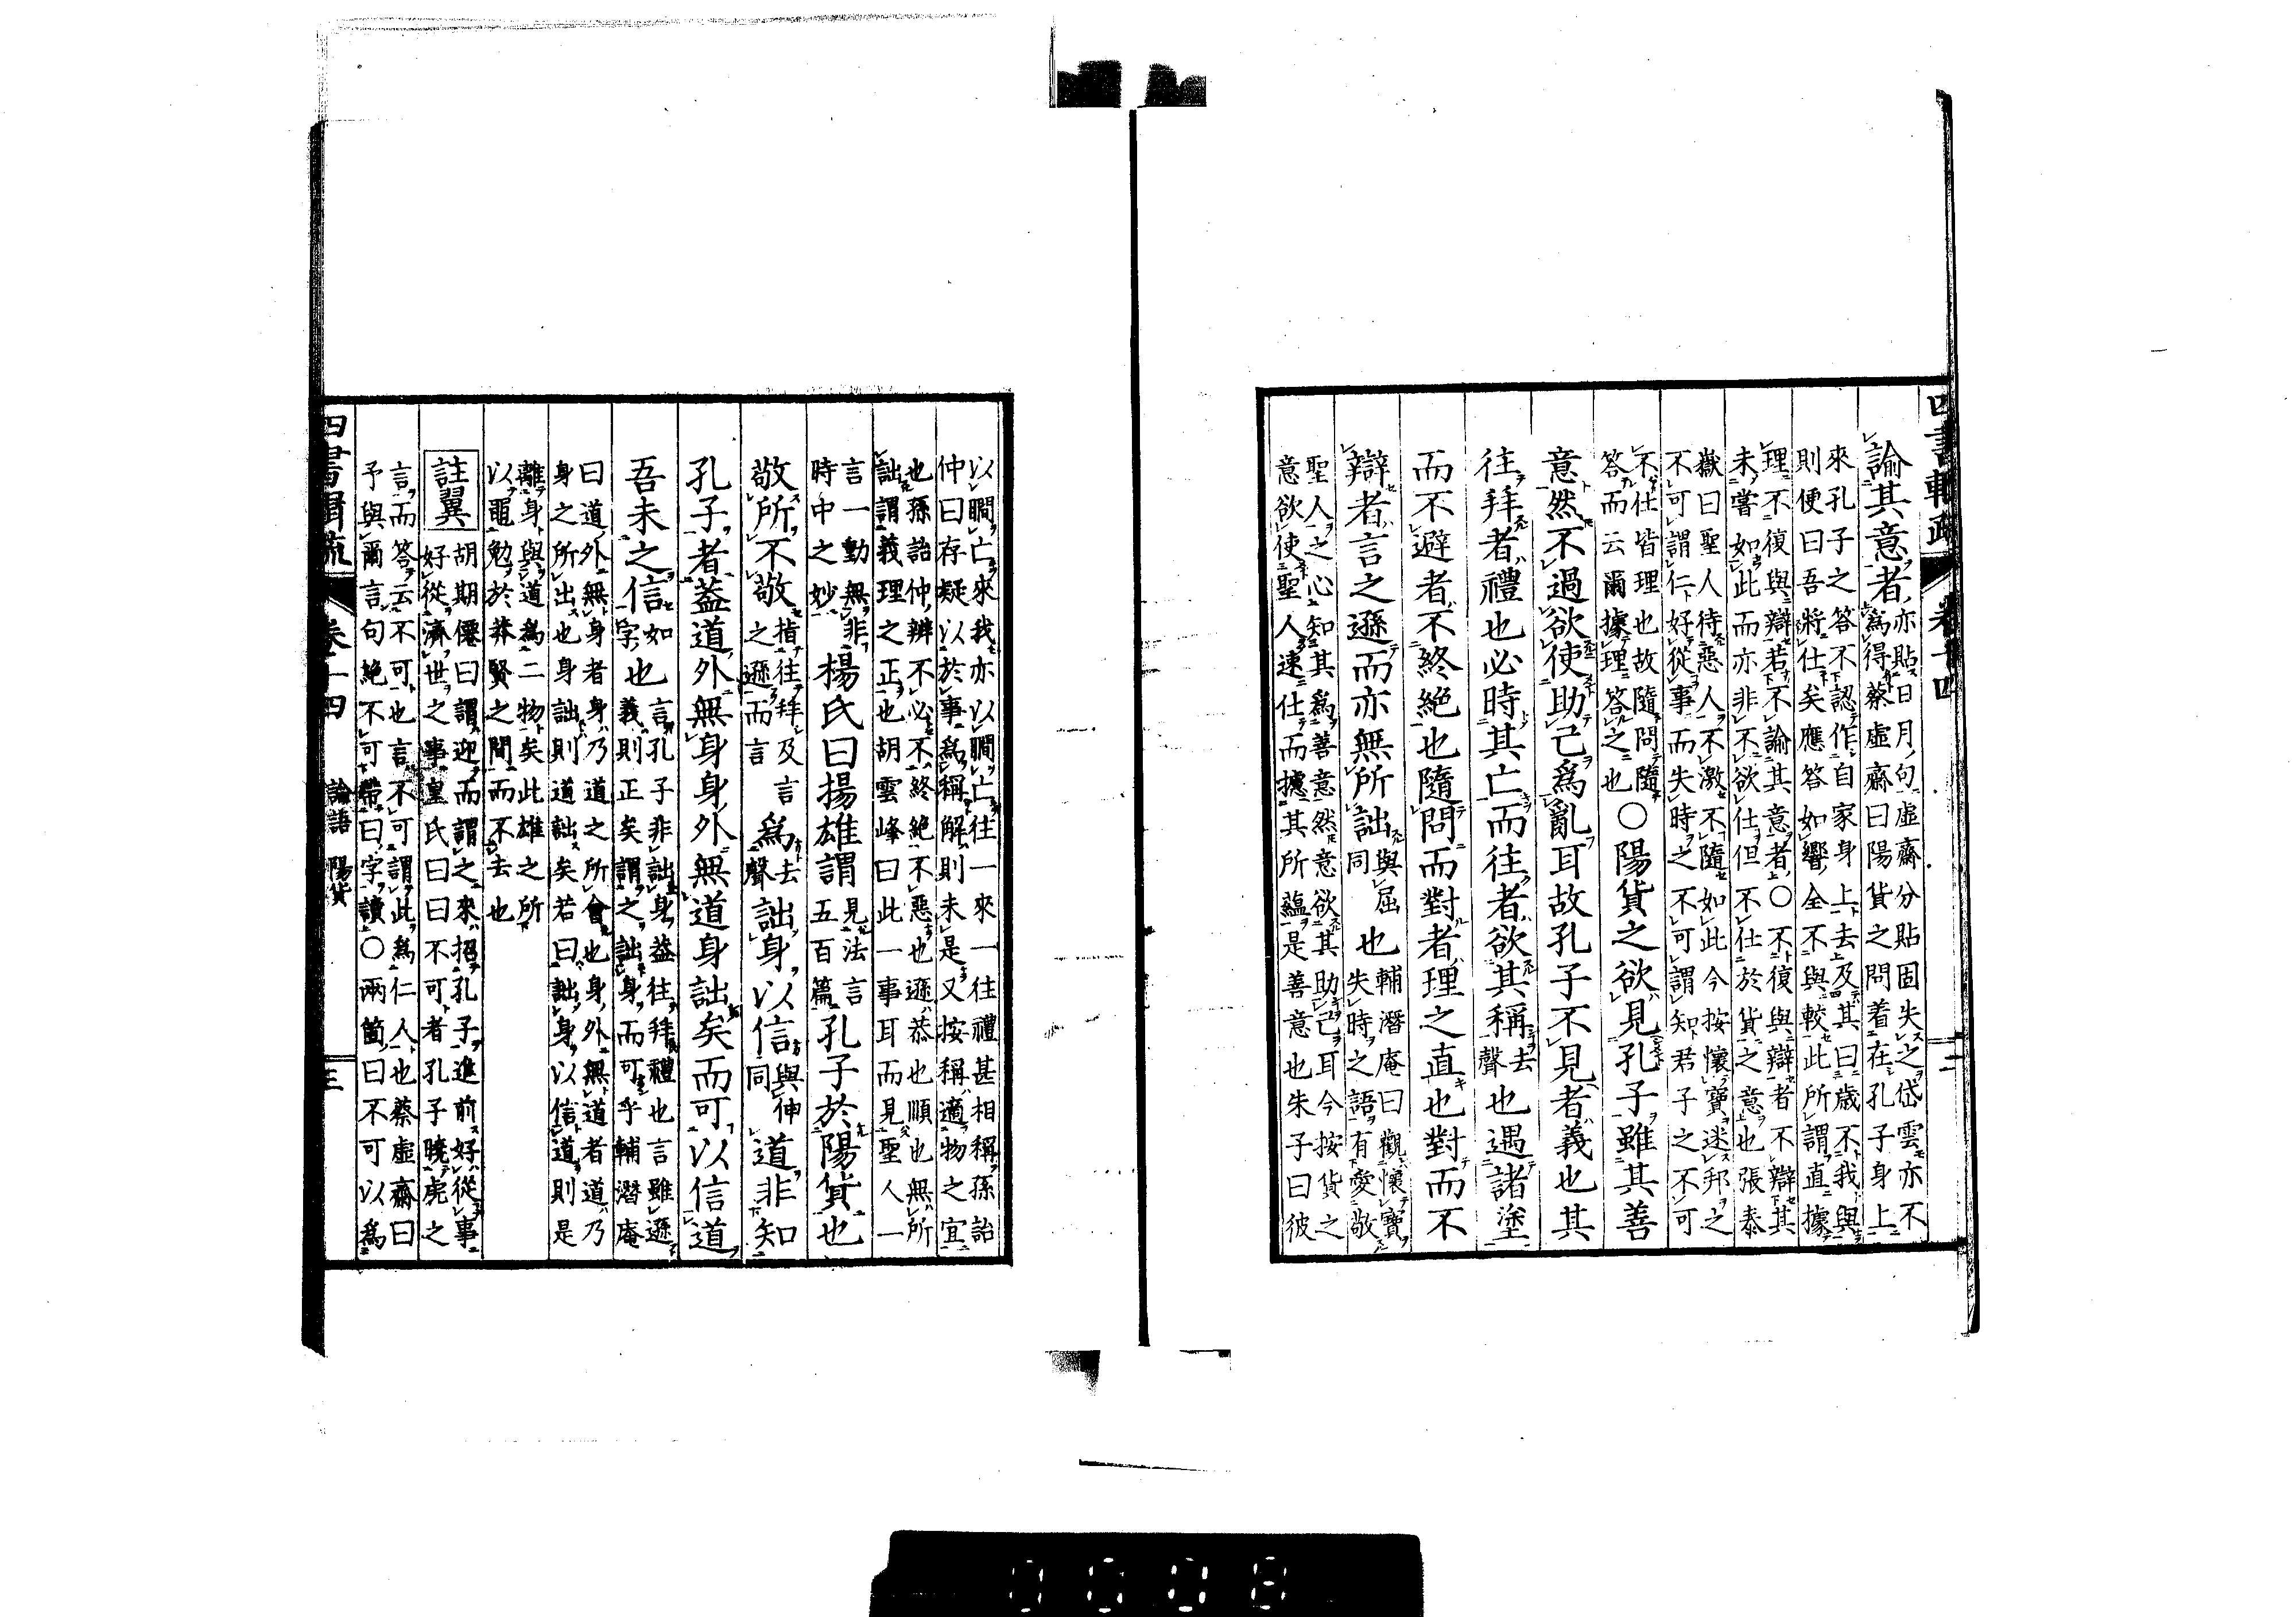 四書輯疏 卷十四 二
諭其意者亦貼日月句虛齋分貼固失之岱雲亦不
爲得蔡虛齋曰陽貨之問着在孔子身上
來孔子之答不認作自家身上去及其曰歲不我與
則便曰吾將仕矣應答如響全不與較此所謂直據
理不復與辯若不諭其意者○不復與辯者不辯其
未嘗如此而亦非不欲仕但不仕於貨之意也張泰
嶽曰聖人待惡人不激不隨如此今按懷寶迷邦之
不可謂仁好從事而失時之不可謂知君子之不可
不仕皆理也故隨問隨
答而云爾據理答之也○陽貨之欲見孔子雖其善
意然不過欲使助己爲亂耳故孔子不見者義也其
往拜者禮也必時其亡而往者欲其稱去聲也遇諸塗
而不避者不終絕也隨問而對者理之直也對而不
辯者言之遜而亦無所詘與屈同也輔潛庵曰觀懷寶
失時之語有愛敬
聖人之心知其爲善意然意欲其助己耳今按貨之
意欲使聖人速仕而攄其所蘊是善意也朱子曰彼
以瞷亡來我亦以瞷亡往一來一往禮甚相稱孫詒
仲曰存疑以於事爲稱解則未是又按稱適物之宜
也孫詒仲辨不必不終絕不惡也遜恭也順也無所
詘謂義理之正也胡雲峰曰此一事耳而見聖人一
言一動無非
時中之妙楊氏曰揚雄謂見法言五百篇孔子於陽貨也
敬所不敬指往拜及言之遜而言爲去聲詘身以信與伸同道非知
孔子者蓋道外無身身外無道身詘矣而可以信道
吾未之信如字也言孔子非詘身蓋往拜禮也言雖遜
義則正矣謂之詘身而可乎輔潛庵
曰道外無身者身乃道之所會也身外無道者道乃
身之所出也身詘則道詘矣若曰詘身以信道則是
離身與道爲二物矣此雄之所
以黽勉於莽賢之間而不去也
註翼 胡期僊曰謂迎而謂之來招孔子進前好從事
好從濟世之事皇氏曰曰不可者孔子曉虎之
言而答云不可也言不可謂此爲仁人也蔡虛齋曰
予與爾言句絕不可帶曰字讀○兩箇曰不可以爲
四書輯疏 卷十四 論語 陽貨 三
0008